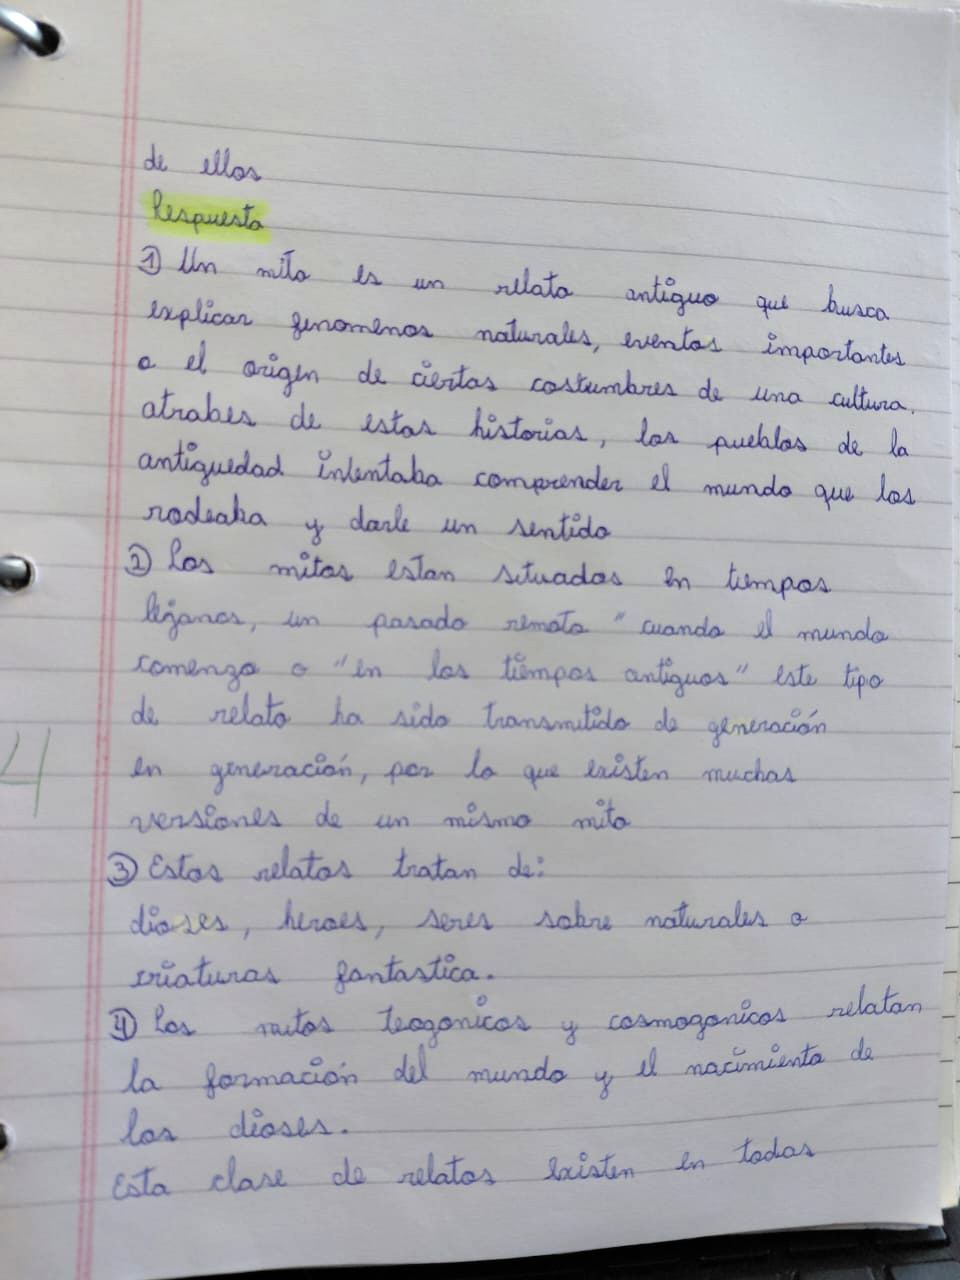 de ellos
Respuesta
① Un mito es un relato antiguo que busca
explicar fenomenos naturales, eventos importantes
o el origen de ciertas costumbres de una cultura.
atrabes de estas historias, los pueblos de la
antiguedad intentaba comprender el mundo que los
rodeaba y darle un sentido
② Los mitos estan situados en tiempos
lejanos, un pasado remoto "cuando el mundo
comenzo o "en los tiempos antiguos" este tipo
de relato ha sido transmitido de generación
en generación, por lo que existen muchas
versiones de un mismo mito
③ Estos relatos tratan de:
dioses, heroes, seres sobre naturales o
criaturas fantastica.
④ Los mitos teogonicos y cosmogonicos relatan
la formación del mundo y el nacimiento de
los dioses.
Esta clase de relatos existen en todas